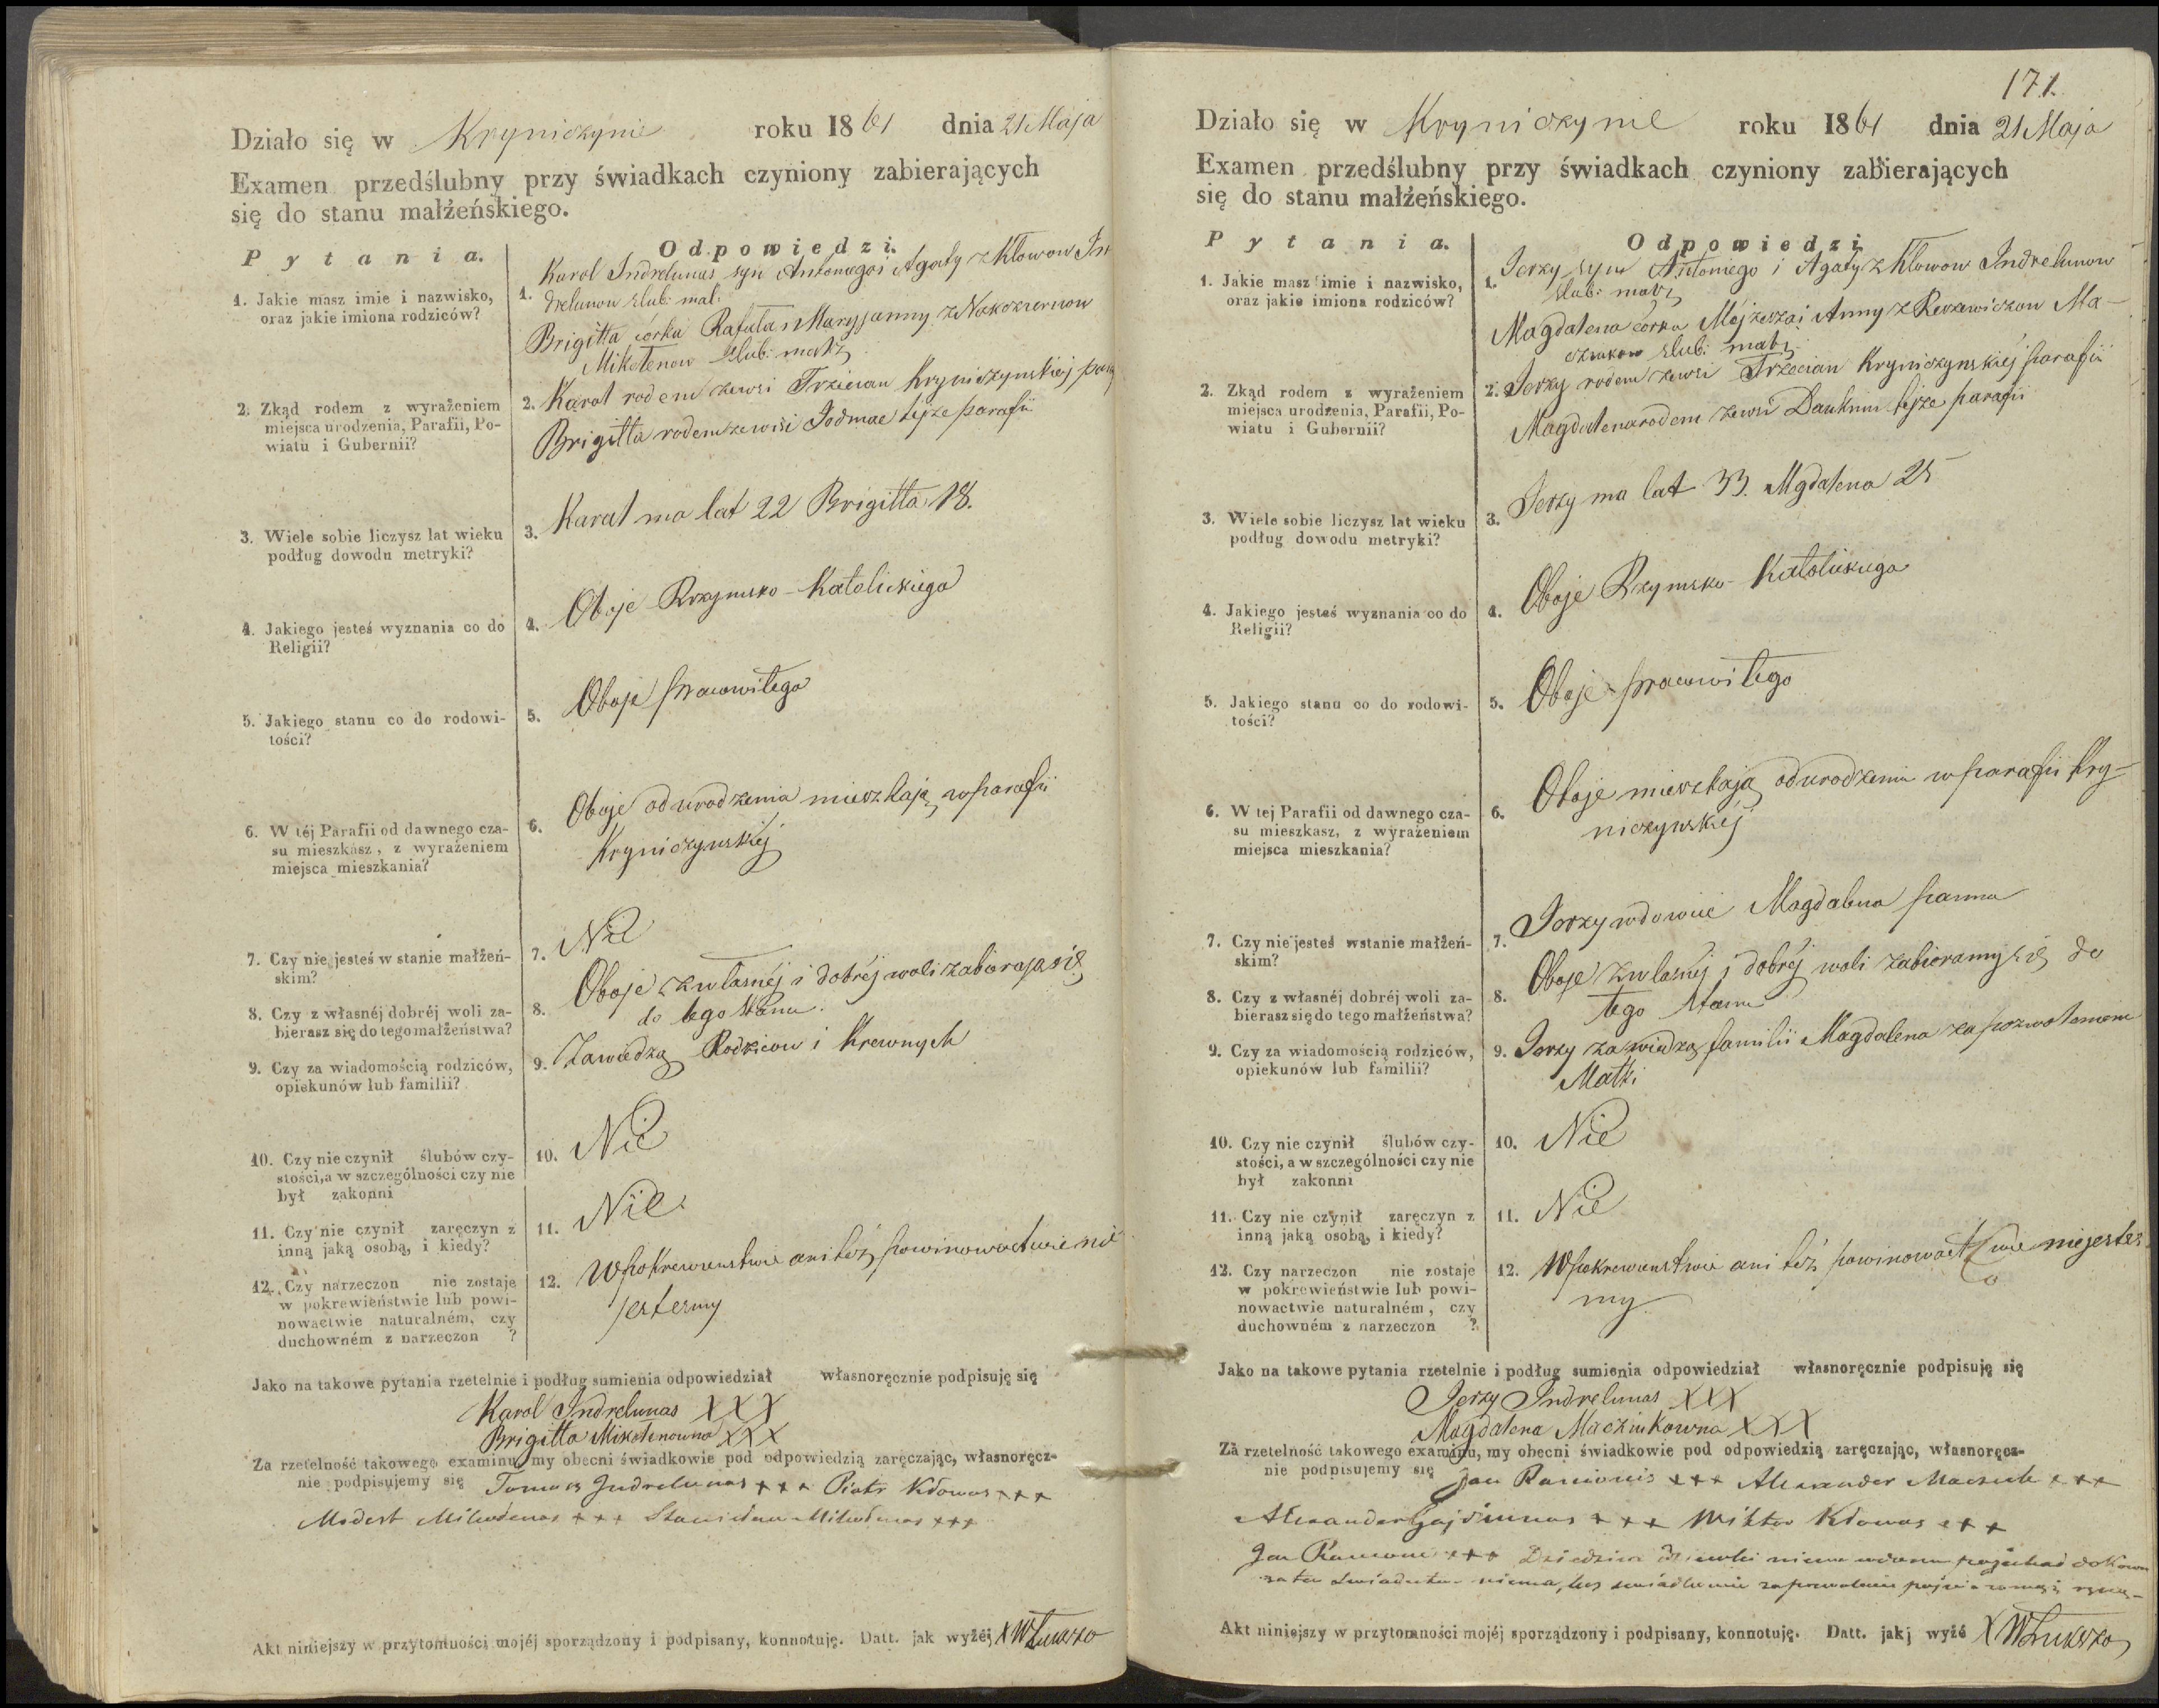 Działo się w Krynioczynie roku 1861 dnia 21 Maja
Examen przedślubny przy świadkach czyniony zabierających
się do stanu małżeńskiego.
Pytania.
Odpowiedzi.
1. Jakie masz imie i nazwisko,
oraz jakie imiona rodziców?
1. Karol Indrelunas syn Antoniego i Agaty z Kłowow In
drelunow slub: mał:
Brigitta córka Rafała i Maryjanny z
Mikołenow slub: małż
2. Zkąd rodem z wyrażeniem
miejsca urodzenia, Parafii, Po-
wiatu i Gubernii?
2. Karol rodem zewsi Trzecian Kryniczynskiej
Brigitta rodem zewsi Jodmae tejże parafii
3. Wiele sobie liczysz lat wieku
podług dowodu metryki?
3. Karal ma lat 22 Brigitta 18.
4. Jakiego jesteś wyznania co do
Religii?
4. Oboje Rzymsko-Katolickiego
5. Jakiego stanu co do rodowi-
tości?
5. Oboje pracowitego
6. W téj Parafii od dawnego cza-
su mieszkasz, z wyrażeniem
miejsca mieszkania?
6. Oboje od urodzenia mieszkają w parafii
Kryniczynskiej
7. Czy nie jesteś w stanie małżeń-
skim?
7. Nie
8. Czy z własnéj dobréj woli za-
bierasz się do tego małżeństwa?
8. Oboje z własnéj i dobréj woli zabierają się
do tego stanu.
9. Czy za wiadomością rodziców,
opiekunów lub familii?
9. Zawiedzą Rodzicow i Krewnych
10. Czy nie czynił ślubów czy-
stości, a w szczególności czy nie
był zakonni
10. Nie
11. Czy nie czynił zaręczyn z
inną jaką osobą, i kiedy?
11. Nie
12. Czy narzeczon nie zostaje
w pokrewieństwie lub powi-
nowactwie naturalném, czy
duchowném z narzeczon ?
12. W pokrewienstwie ani też powinowactwie nie
jestesmy
Jako na takowe pytania rzetelnie i podług sumienia odpowiedział własnoręcznie podpisuję się
Karol Indrelunas XXX
Brigitta Mikołenowna XXX
Za rzetelność takowego examinu my obecni świadkowie pod odpowiedzią zaręczając, własnoręcz-
nie podpisujemy się Tomasz Indrelunas +++ Piotr Kłowas +++
Modest Mikołenas +++ Stanisław Mikołenas +++
Akt niniejszy w przytomności mojéj sporządzony i podpisany, konnotuję. Datt. jak wyżéj X W Łukszo
171.
Działo się w Kryniczynie roku 1861 dnia 21 Maja
Examen przedślubny przy świadkach czyniony zabierających
się do stanu małżeńskiego.
Pytania.
Odpowiedzi
1. Jakie masz imie i nazwisko,
oraz jakie imiona rodziców?
1. Jerzy syn Antoniego i Agaty z Kłowow Indrelunow
slub: małż
Magdalena córka Mojżesza i Anny z Ma-
slub: małż
2. Zkąd rodem z wyrażeniem
miejsca urodzenia, Parafii, Po-
wiatu i Gubernii?
2. Jerzy rodem zewsi Trzecian Kryniczynskiéj parafii
Magdalena rodem zewsi Daukniu tejże parafii
3. Wiele sobie liczysz lat wieku
podług dowodu metryki?
3. Jerzy ma lat 33. Mgdalena 25
4. Jakiego jesteś wyznania co do
Religii?
4. Oboje Rzymsko-Katolickiego
5. Jakiego stanu co do rodowi-
tości?
5. Oboje pracowitego
6. W tej Parafii od dawnego cza-
su mieszkasz, z wyrażeniem
miejsca mieszkania?
6. Oboje mieszkają od urodzenia w parafii Kry-
niczynskiéj
7. Czy nie jesteś w stanie małżeń-
skim?
7. Jerzy wdowiec Magdalena panna
8. Czy z własnéj dobréj woli za-
bierasz się do tego małżeństwa?
8. Oboje z własnéj i dobréj woli zabieramy się do
tego stanu
9. Czy za wiadomością rodziców,
opiekunów lub familii?
9. Jerzy za wiedzą familii Magdalena za pozwoleniem
Matki
10. Czy nie czynił ślubów czy-
stości, a w szczególności czy nie
był zakonni
10. Nie
11. Czy nie czynił zaręczyn z
inną jaką osobą, i kiedy?
11. Nie
12. Czy narzeczon nie zostaje
w pokrewieństwie lub powi-
nowactwie naturalném, czy
duchowném z narzeczon ?
12. W pokrewienstwie ani też powinowactwie niejestes
my
Jako na takowe pytania rzetelnie i podług sumienia odpowiedział własnoręcznie podpisuję się
Jerzy Indrelunas XXX
Magdalena Macziukowna XXX
Za rzetelność takowego examinu, my obecni świadkowie pod odpowiedzią zaręczając, własnoręcz-
nie podpisujemy się Jan +++ Alexander +++
Alexander +++ Wiktor Kłowas +++
Jan +++
Akt niniejszy w przytomności mojéj sporządzony i podpisany, konnotuję. Datt. jak wyżé X W Łukszo